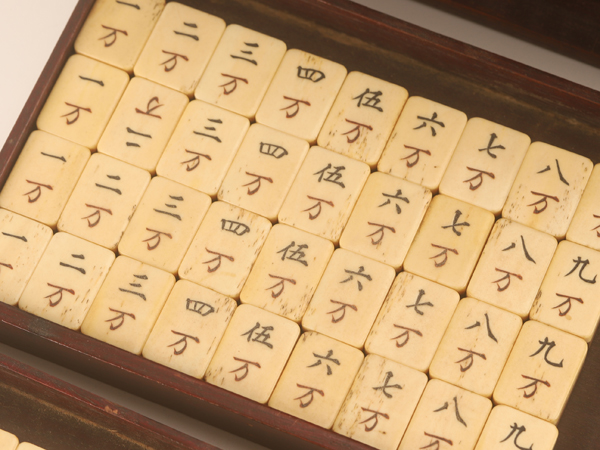 一 二 三 四 伍 六 七 八
万 万 万 万 万 万 万 万
一 二 三 四 伍 六 七 八 九
万 万 万 万 万 万 万 万 万
一 二 三 四 伍 六 七 八 九
万 万 万 万 万 万 万 万 万
一 二 三 四 伍 六 七 八 九
万 万 万 万 万 万 万 万